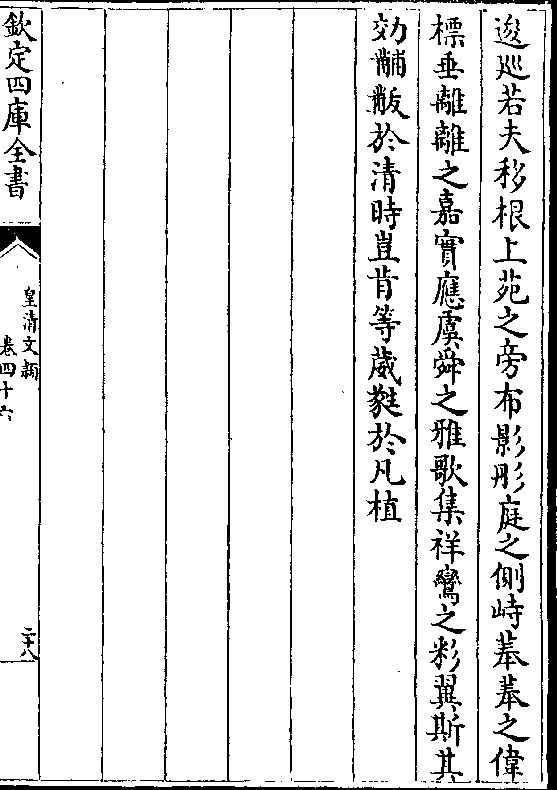 逡廵若夫移根上苑之旁布影彤庭之側峙菶菶之偉
標垂離離之嘉實應虞舜之雅歌集祥鸞之彩翼斯其
効黼黻於清時豈肯等葳蕤於凡植
欽定四庫全書
皇清文穎
卷四十六
二十八